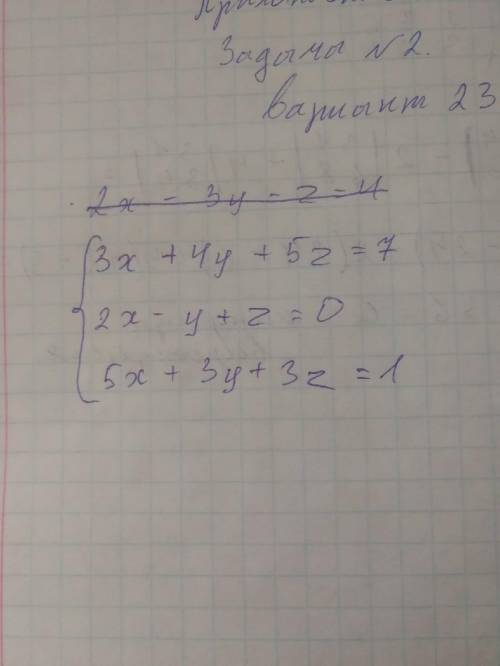 Задачи №2.
Вариант 23
2x - 3y - z = 4
3x + 4y + 5z = 7
2x - y + z = 0
5x + 3y + 3z = 1